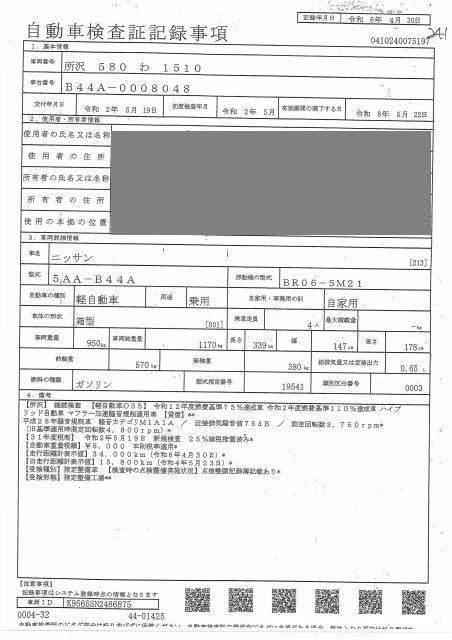 記録年月日 令和 6年 4月 30日
自動車検査証記録事項
0410240075197
1. 基本情報
車両番号 所沢 580 わ 1510
車台番号 B44A-0008048
交付年月日 令和 2年 5月 19日 初度検査年月 令和 2年 5月 有効期間の満了する日 令和 8年 5月 22日
2. 使用者・所有者情報
使用者の氏名又は名称
使用者の住所
所有者の氏名又は名称
所有者の住所
使用の本拠の位置
3. 車両詳細情報
車名 ニッサン [213]
型式 5AA-B44A 原動機の型式 BR06-SM21
自動車の種別 軽自動車 用途 乗用 自家用・事業用の別 自家用
車体の形状 箱型 [001] 乗車定員 4人 最大積載量 -kg
車両重量 950kg 車両総重量 1170kg 長さ 339cm 幅 147cm 高さ 178cm
前軸重 570kg 後軸重 380kg 総排気量又は定格出力 0.65 L
燃料の種類 ガソリン 型式指定番号 19541 類別区分番号 0003
4. 備考
【所沢】 継続検査 【軽自動車OSS】 令和12年度燃費基準75%達成車 令和2年度燃費基準110%達成車 ハイブ
リッド自動車 マフラー加速騒音規制適用車 【貸渡】**
平成28年騒音規制車 騒音カテゴリM1A1A / 近接排気騒音値75dB / 測定回転数3,750rpm*
(旧基準適用時測定回転数4,800rpm)*
【31年度税制】 令和2年5月19日 新規検査 25%減税措置済み*
【自動車重量税額】¥5,000 本則税率適用*
【走行距離計表示値】34,000km (令和6年4月30日)*
【旧走行距離計表示値】15,800km (令和4年5月23日)*
【受検種別】指定整備車 【検査時の点検整備実施状況】点検整備記録簿記載あり*
【受検形態】指定整備工場**
【注意事項】
記録事項はシステム登録時点の情報となります
車両ID K9565SN2486875
0004-32 44-01425